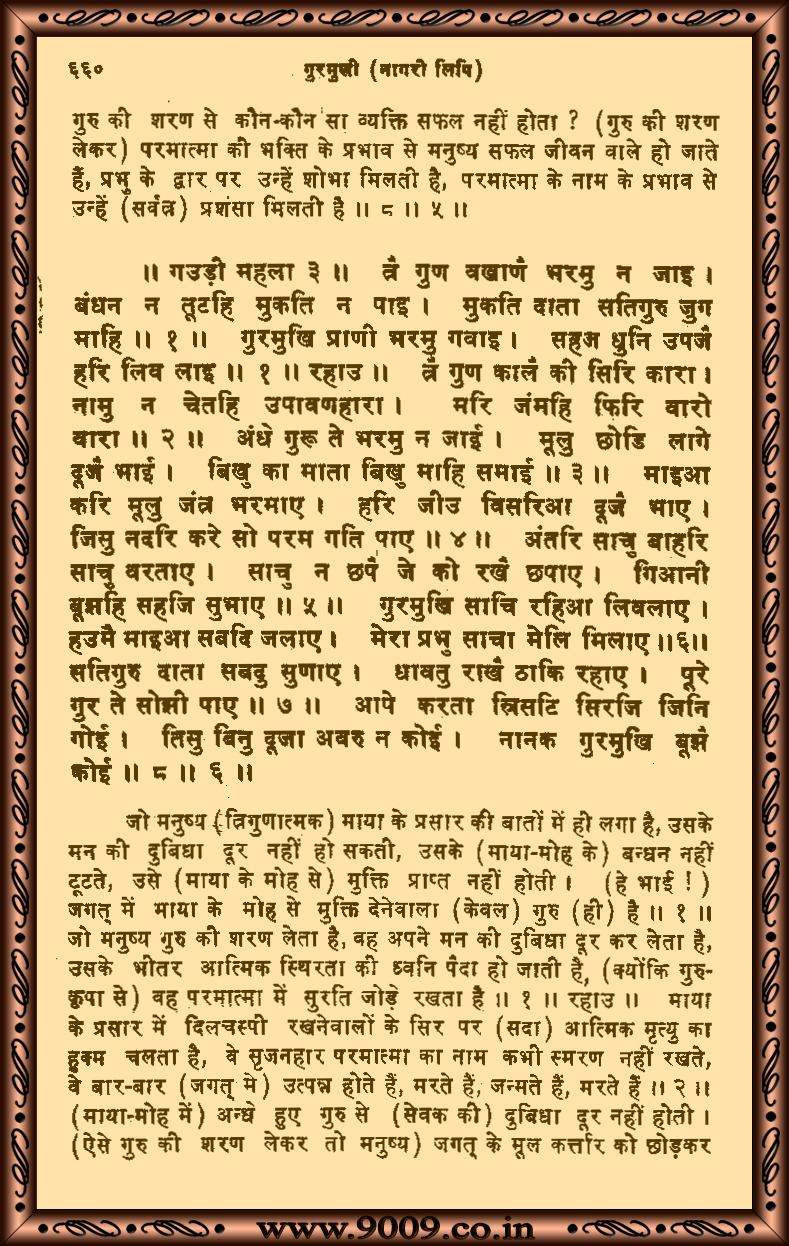 ६६० गुरमुखी (नागरी लिपि)
गुरु की शरण से कौन-कौन सा व्यक्ति सफल नहीं होता ? (गुरु की शरण
लेकर) परमात्मा की भक्ति के प्रभाव से मनुष्य सफल जीवन वाले हो जाते
हैं, प्रभु के द्वार पर उन्हें शोभा मिलती है, परमात्मा के नाम के प्रभाव से
उन्हें (सर्वत्र) प्रशंसा मिलती है ॥ ८ ॥ ५ ॥
॥ गउड़ी महला ३ ॥ त्रै गुण वखाणै भरमु न जाइ ।
बंधन न तूटहि मुकति न पाइ । मुकति दाता सतिगुरु जुग
माहि ॥ १ ॥ गुरमुखि प्राणी भरमु गवाइ । सहज धुनि उपजै
हरि लिव लाइ ॥ १ ॥ रहाउ ॥ त्रै गुण कालै की सिरि कारा ।
नामु न चेतहि उपावणहारा । मरि जंमहि फिरि वारो
वारा ॥ २ ॥ अंधे गुरू ते भरमु न जाई । मूलु छोडि लागे
दूजै भाई । बिखु का माता बिखु माहि समाई ॥ ३ ॥ माइआ
करि मूलु जंत्र भरमाए । हरि जीउ विसरिआ दूजै भाए ।
जिसु नदरि करे सो परम गति पाए ॥ ४ ॥ अंतरि साचु बाहरि
साचु वरताए । साचु न छपै जे को रखै छपाए । गिआनी
बूझहि सहजि सुभाए ॥ ५ ॥ गुरमुखि साचि रहिआ लिवलाए ।
हउमै माइआ सबदि जलाए । मेरा प्रभु साचा मेलि मिलाए ॥६॥
सतिगुरु दाता सबदु सुणाए । धावतु राखै ठाकि रहाए । पूरे
गुर ते सोझी पाए ॥ ७ ॥ आपे करता स्रिसटि सिरजि जिनि
गोई । तिसु बिनु दूजा अवरु न कोई । नानक गुरमुखि बूझै
कोई ॥ ८ ॥ ६ ॥
जो मनुष्य (त्रिगुणात्मक) माया के प्रसार की बातों में ही लगा है, उसके
मन की दुबिधा दूर नहीं हो सकती, उसके (माया-मोह के) बन्धन नहीं
टूटते, उसे (माया के मोह से) मुक्ति प्राप्त नहीं होती । (हे भाई !)
जगत् में माया के मोह से मुक्ति देनेवाला (केवल) गुरु (ही) है ॥ १ ॥
जो मनुष्य गुरु की शरण लेता है, वह अपने मन की दुबिधा दूर कर लेता है,
उसके भीतर आत्मिक स्थिरता की ध्वनि पैदा हो जाती है, (क्योंकि गुरु-
कृपा से) वह परमात्मा में सुरति जोड़े रखता है ॥ १ ॥ रहाउ ॥ माया
के प्रसार में दिलचस्पी रखनेवालों के सिर पर (सदा) आत्मिक मृत्यु का
हुक्म चलता है, वे सृजनहार परमात्मा का नाम कभी स्मरण नहीं रखते,
वे बार-बार (जगत् में) उत्पन्न होते हैं, मरते हैं, जन्मते हैं, मरते हैं ॥ २ ॥
(माया-मोह में) अन्धे हुए गुरु से (सेवक की) दुबिधा दूर नहीं होती ।
(ऐसे गुरु की शरण लेकर तो मनुष्य) जगत् के मूल कर्त्तार को छोड़कर
www.9009.co.in